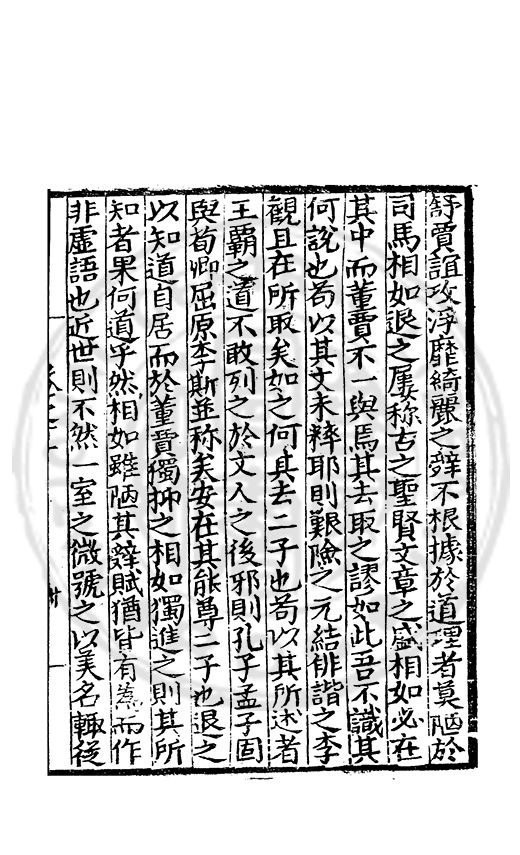 舒賈誼攻浮靡綺麗之辭不根據於道理者莫陋於
司馬相如退之屢称古之聖賢文章之盛相如必在
其中而董賈不一與焉其去取之謬如此吾不識其
何說也苟以其文未粹耶則艱險之元結俳諧之李
觀且在所取矣如之何其去二子也苟以其所述者
王霸之道不敢列之於文人之後邪則孔子孟子固
與荀卿屈原李斯並称矣安在其能尊二子也退之
以知道自居而於董賈獨抑之相如獨進之則其所
知者果何道乎然相如雖陋其辭賦猶皆有為而作
非虛語也近世則不然一室之微號之以美名輙從